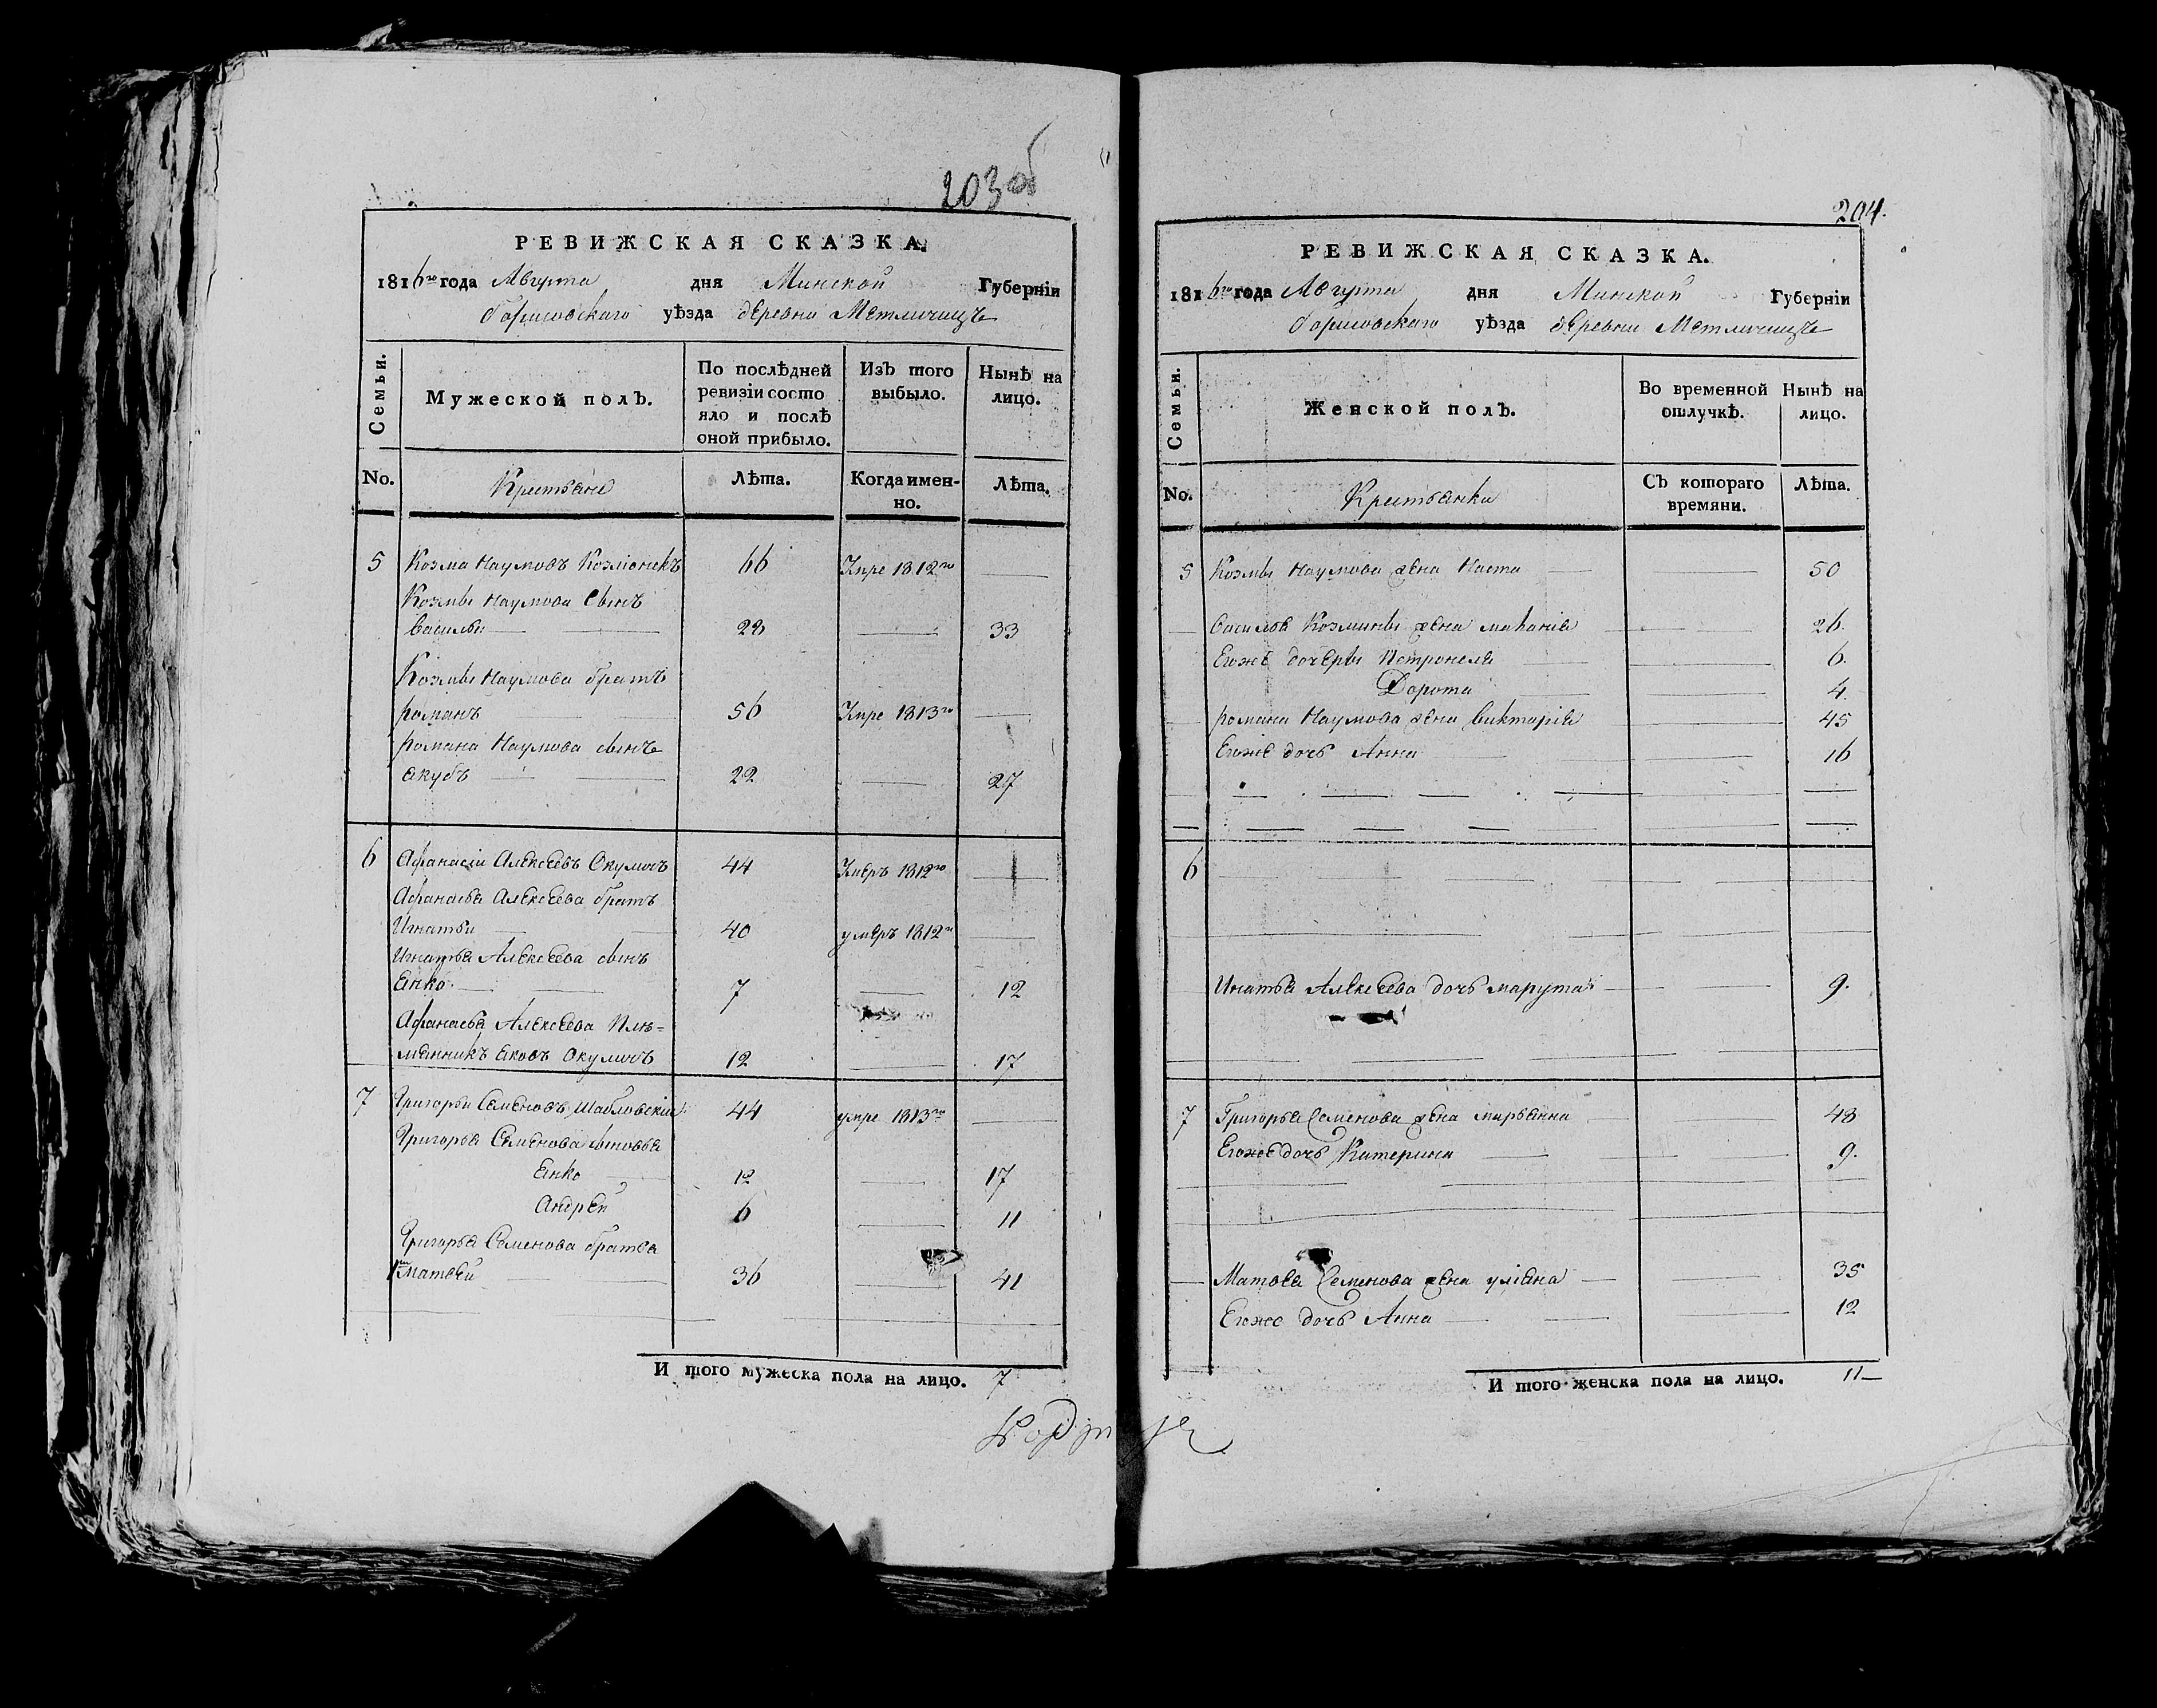 203 об
РЕВИЖСКАЯ СКАЗКА.
1816го года Августа дня Минской Губерніи
Борисовскаго уѣзда деревни Метличицъ
Семьи.
Мужеской полъ.
По послѣдней ревизіи состояло и послѣ оной прибыло.
Изъ того выбыло.
Нынѣ на лицо.
No.
Крестьяне
Лѣта.
Когда именно.
Лѣта.
5 Козма Наумовъ Козліонекъ 66 Умре 1812го
Козмы Наумова сынъ
Василѣй 28 33
Козмы Наумова братъ
романъ 56 Умре 1813го
романа Наумова сынъ
Якубъ 22 27
6 Афанасій Алексеевъ Окуличъ 44 Умеръ 1812го
Афанасья Алексеева братъ
Игнатьи 40 умеръ 1812го
Игнатья Алексеева сынъ
Янко 7 12
Афанасья Алексеева Пле=
мянникъ Яковъ Окуличъ 12 17
7 Григорьи Семеновъ Шабловскій 44 умре 1813го
Григорья Семенова сыновья
Янко 12 17
Андрей 6 11
Григорья Семенова братья
1й Матвей 36 41
И того мужеска пола на лицо. 7
204.
РЕВИЖСКАЯ СКАЗКА.
1816го года Августа дня Минской Губерніи
Борисовскаго уѣзда деревни Метличицъ
Семьи.
Женской полъ.
Во временной отлучкѣ.
Нынѣ на лицо.
No.
Крестьянки
Съ котораго времяни.
Лѣта.
5 Козмы Наумова жена Наста 50
Василья Козмины жена Маланія 26.
Егоже дочеры Петронеля 6.
Дорота 4
романа Наумова жена Викторія 45
Егоже дочь Анна 16
6
Игнатья Алексеева дочь марута 9.
7 Григорья Семенова жена марьянна 48
Егоже дочь Катерина 9.
Матвея Семенова жена уліяна 35
Егоже дочь Анна 12
И того женска пола на лицо. 11